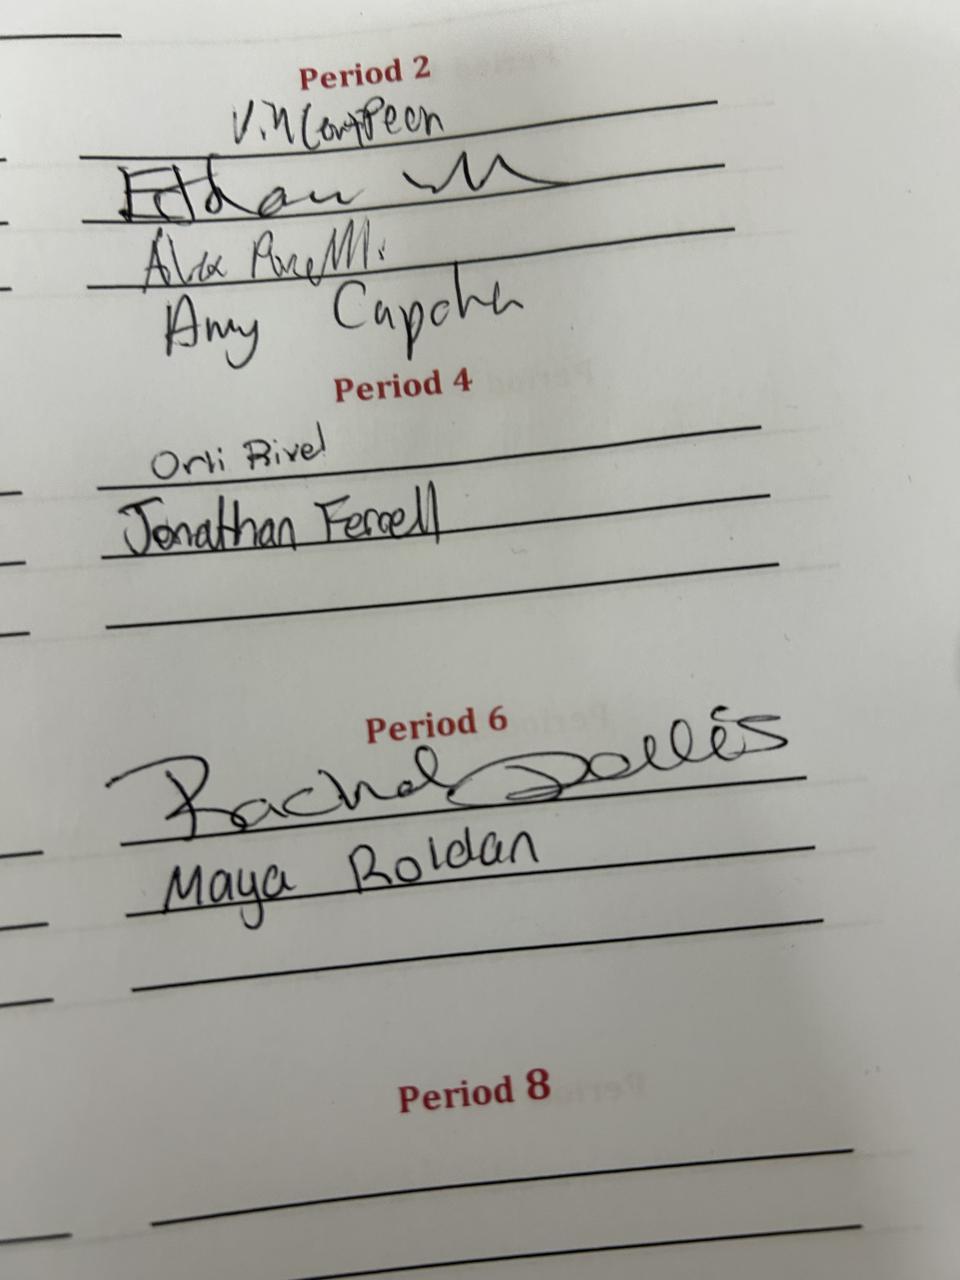 Period 2
Vincent Peon
Ethan
Alex
Amy Capcha
Period 4
Orli Rivel
Jonathan Ferrell
Period 6
Rachel
Maya Roldan
Period 8